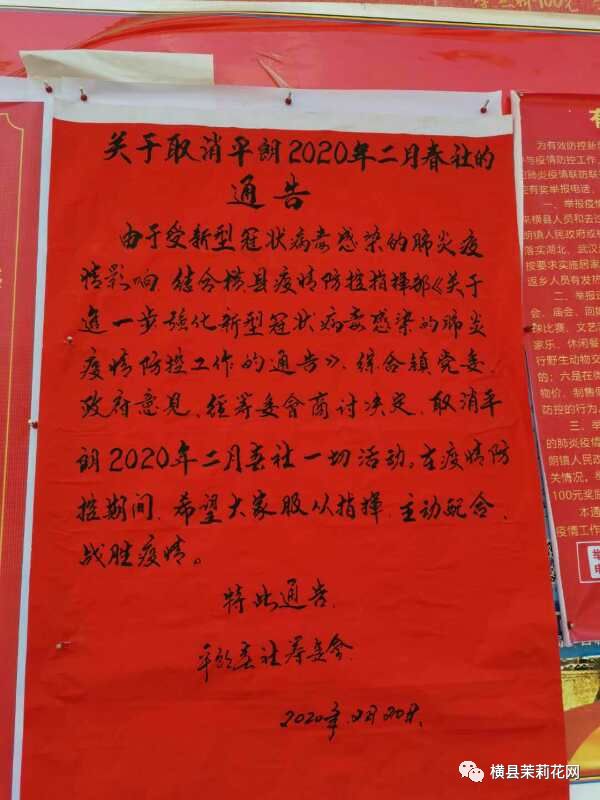 关于取消平朗2020年二月春社的
通告
由于受新型冠状病毒感染的肺炎疫
情影响,结合横县疫情防控指挥部《关于
进一步强化新型冠状病毒感染的肺炎
疫情防控工作的通告》,综合镇党委、
政府意见,经筹委會商讨决定,取消平
朗2020年二月春社一切活动。在疫情防
控期间,希望大家服从指挥,主动配合,
战胜疫情。
特此通告.
平朗春社筹委會.
2020年2月20日.
为有效防控新
与疫情防控工作,
肺炎疫情联防联
有奖举报电话,
一、举报疫情
来横县人员和去过
朗镇人民政府或
落实湖北、武汉
按要求实施居家
返乡人员有发热
二、举报
会、庙会、回娘
妹比赛、文艺
家乐、休闲餐
行野生动物交
的;六是在微
物价、制售假
防控的行为,
三、举
的肺炎疫情
朗镇人民政
关情况。
100元奖励
本通
疫情工作
横县茉莉花网